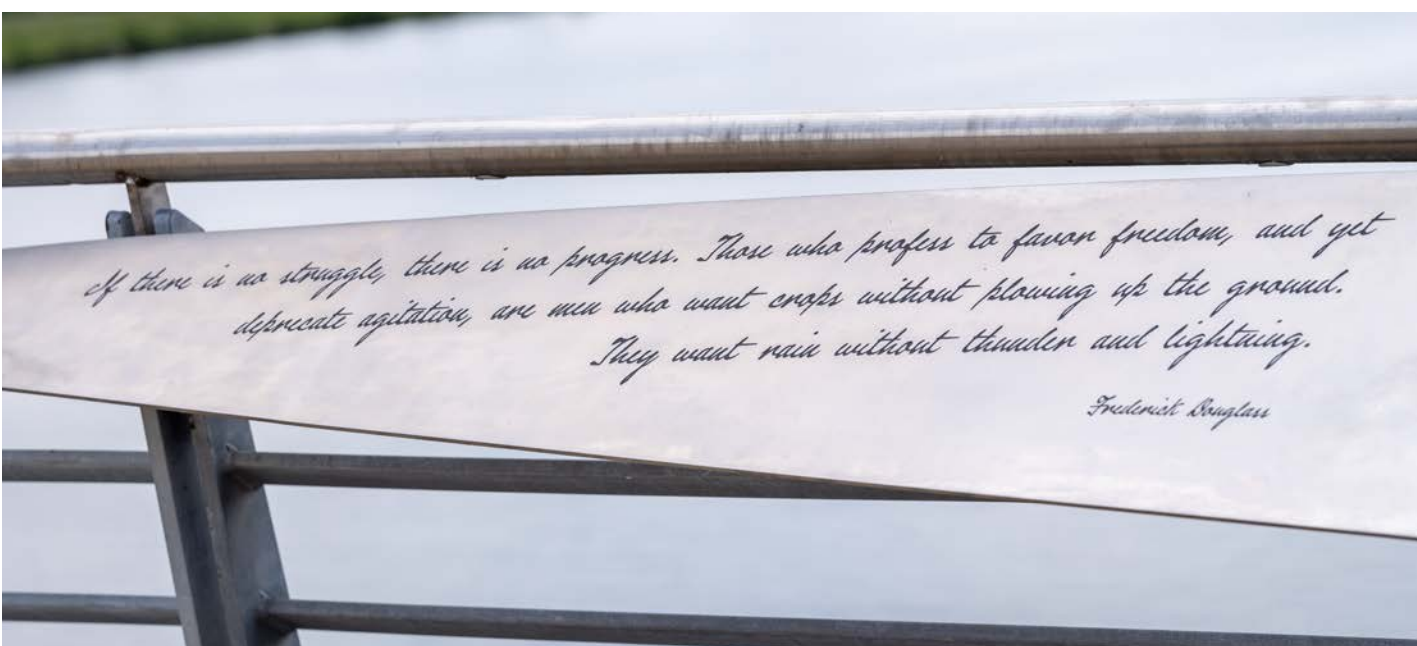 If there is no struggle, there is no progress. Those who profess to favor freedom, and yet
deprecate agitation, are men who want crops without plowing up the ground.
They want rain without thunder and lightning.
Frederick Douglass